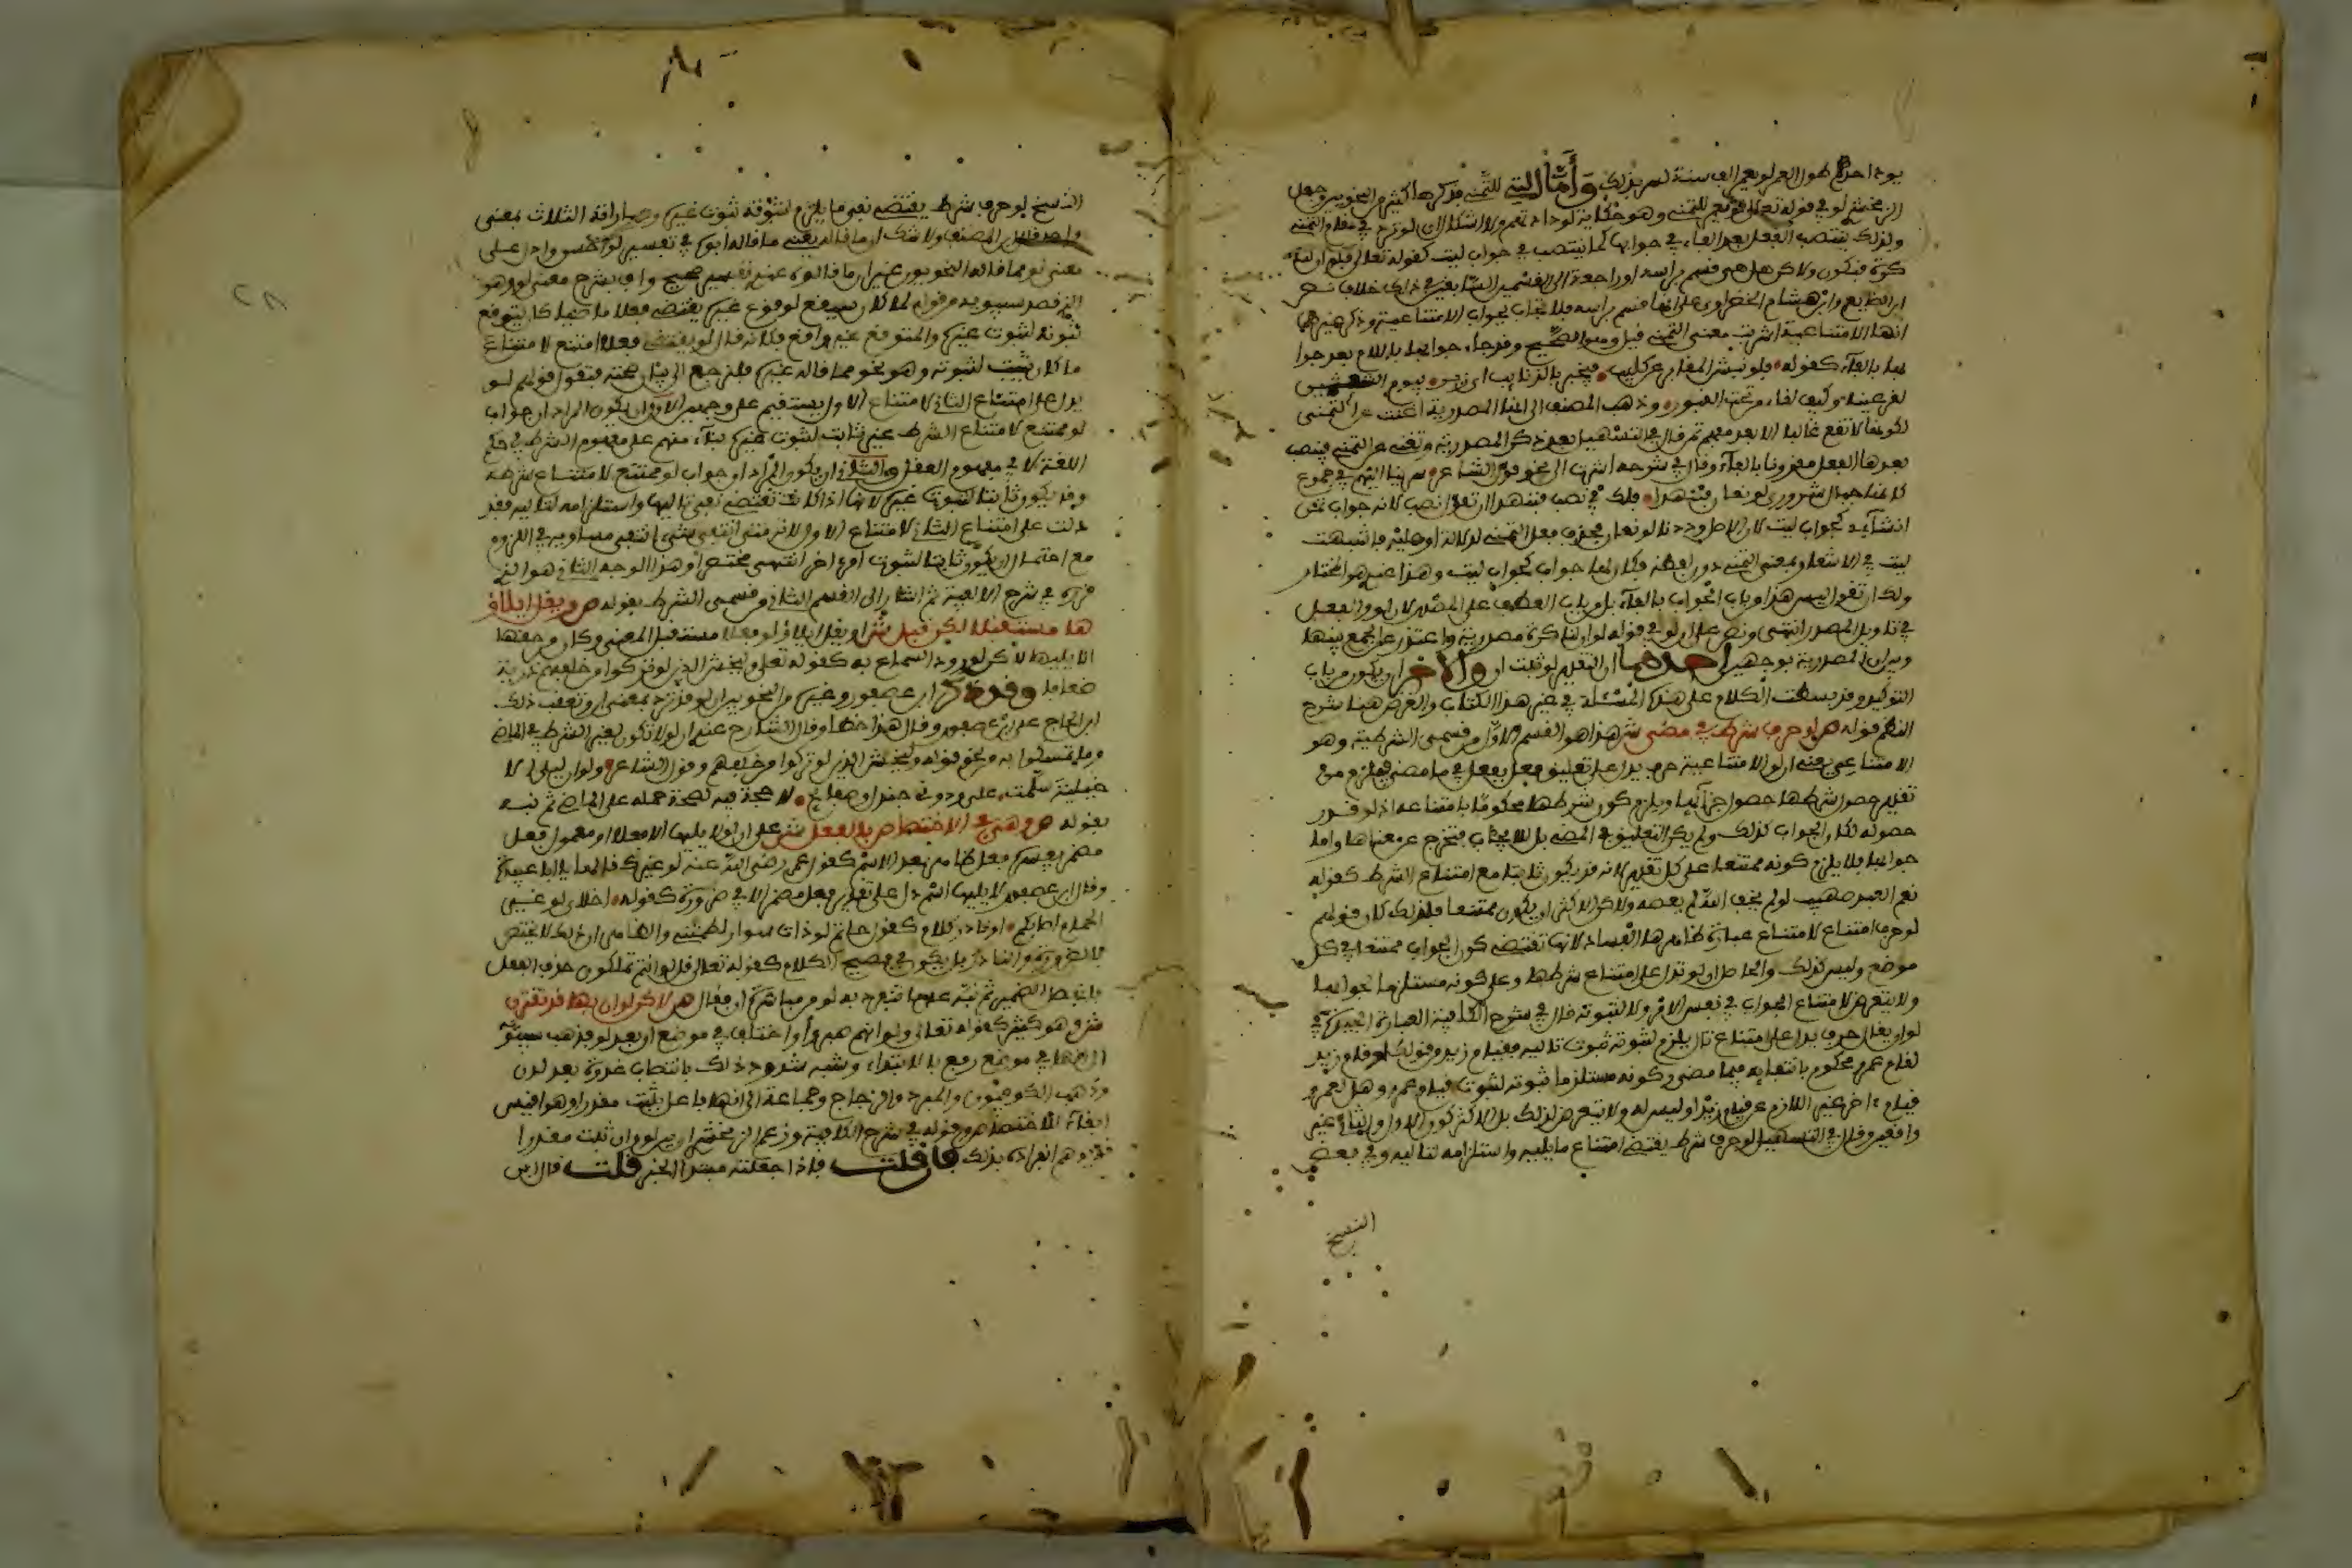 يود احدكم طول العمر لو يعمر الف سنة لسر بذلك وأما التي للتمني فذكرها اكثر النحويين وجعل
الزمخشري لو في قوله تعالى للتمني وهو حكاية لودادتهم ولا اشكال ان لو ترد في مقام التمني
ولذلك ينتصب الفعل بعد الفاء في جوابها كما ينتصب في جواب ليت كقوله تعالى فلو ان لنا
كرة فنكون ولاكن هل هي قسم براسه او راجعة الى القسمين السابقين في ذلك خلاف نص
ابن الضايع وابن هشام الخضراوي على انها قسم براسه فلا تجاب بجواب الامتناعية وذكر غيرهما
انها الامتناعية اشربت معنى التمني قيل وهو الصحيح وقد جاء جوابها باللام بعد جوا
بها بالفاء كقوله فلو نبش المقابر عن كليب فيخبر بالذنايب اي زير بيوم الشعثمين
لقر عينا وكيف لقاء من تحت القبور وذهب المصنف الى انها المصدرية اغنت عن التمني
لكونها لا تقع غالبا الا بعد مفهم تمن قال في التسهيل بعد ذكر المصدرية وتغني عن التمني فينصب
بعدها الفعل مقرونا بالفاء وقال في شرحه اشرت الى نحو قول الشاعر سرينا اليهم في جموع
كانها جبال شرورى لو تعان فتنهدا فلك في نصب فتنهدا ان تقول نصب لانه جواب تمن
انشاءي كجواب ليت لان الاصل وددنا لو تعان فحذف فعل التمني لدلالة لو عليه فاشبهت
ليت في الاشعار بمعنى التمني دون لفظه فكان لها جواب كجواب ليت وهذا عندي هو المختار
ولك ان تقول ليس هذا من باب الجواب بالفاء بل من باب العطف على المصدر لان لو والفعل
في تاويل المصدر انتهى ونص على ان لو في قوله لو ان لنا كرة مصدرية واعتذر عن الجمع بينها
وبين ان المصدرية بوجهين احدهما ان التقدير لو ثبت ان والاخر ان يكون من باب
التوكيد وقد بسطت الكلام على هذه المسئلة في غير هذا الكتاب والغرض هنا شرح
النظم قوله ص لو حرف شرط في مضي ش هذا هو القسم الاول من قسمي الشرطية وهو
الامتناعي يعني ان لو الامتناعية حرف يدل على تعليق فعل بفعل فيما مضى فيلزم من
تقدير حصول شرطها حصول جزائها ويلزم كون شرطها محكوما بامتناعه اذ لو قدر
حصوله لكان الجواب كذلك ولم يكن التعليق في المضي بل للايجاب فتخرج عن معناها واما
جوابها فلا يلزم كونه ممتنعا على كل تقدير لانه قد يكون ثابتا مع امتناع الشرط كقوله
نعم العبد صهيب لو لم يخف الله لم يعصه ولاكن الاكثر ان يكون ممتنعا فلذلك كان قولهم
لو حرف امتناع لامتناع عبارة ظاهرها الفساد لانها تقتضي كون الجواب ممتنعا في كل
موضع وليس كذلك والحاصل ان لو تدل على امتناع شرطها وعلى كونه مستلزما لجوابها
ولا يتعرض لامتناع الجواب في نفس الامر ولا لثبوته قال في شرح الكافية العبارة الجيدة في
لو ان يقال حرف يدل على امتناع تال يلزم لثبوته ثبوت تاليه فقيام زيد من قولك لو قام زيد
لقام عمرو محكوم بانتفايه فيما مضى وكونه مستلزما ثبوته لثبوت قيام عمرو وهل لعمرو
قيام اخر غير اللازم عن قيام زيد او ليس له ولا يتعرض لذلك بل الاكثر كون الاول والثاني غير
واقعين وقال في التسهيل لو حرف شرط يقتضي امتناع ما يليه واستلزامه لتاليه وفي بعض
النسخ
النسخ لو حرف شرط يقتضي نفي ما يلزم لثبوته ثبوت غيره وعباراته الثلاث بمعنى
واحد المصنف ولا شك ان ما قاله في تفسير لو احسن وادل على
معنى لو مما قاله النحويون غير ان ما قالوه عندي تفسير صحيح واف بشرح معنى لو وهو
الذي قصد سيبويه من قوله لما كان سيقع لوقوع غيره يقتضي فعلا ماضيا كان يتوقع
ثبوته لثبوت غيره والمتوقع غير واقع فكانه قال لو يقتضي فعلا امتنع لامتناع
ما كان يثبت لثبوته وهو نحو مما قاله غيره فلنرجع الى بيان صحته فنقول قولهم لو
يدل على امتناع الثاني لامتناع الاول يستقيم على وجهين الاول ان يكون المراد ان جواب
لو ممتنع لامتناع الشرط غير ثابت لثبوت غيره بناء منهم على مفهوم الشرط في حكم
اللغة لا في مفهوم العقل والثاني ان يكون المراد ان جواب لو ممتنع لامتناع شرطه
وقد يكون ثابتا لثبوت غيره لانها اذا كانت تقتضي نفي تاليها واستلزامه لتاليه فقد
دلت على امتناع الثاني لامتناع الاول لانه متى انتفى شيء انتفى مساويه في اللزوم
مع احتمال ان يكون ثابتا لثبوت امر اخر انتهى مختصرا وهذا الوجه الثاني هو الذي
قرره في شرح الالفية ثم اشار الى القسم الثاني من قسمي الشرط بقوله ص ويقل ايلاؤ
ها مستقبلا لكن قبل ش اي يقل ايلاؤ لو فعلا مستقبل المعنى وكان من حقها
الا يليها لاكن لورود السماع به كقوله تعلى وليخش الذين لو تركوا من خلفهم ذرية
ضعافا وقد ذكر ابن عصفور وغيره من النحويين ان لو قد ترد بمعنى ان وتعقب ذلك
ابن الحاج على ابن عصفور وقال هذا خطا وقال الشارح عندي ان لو لا تكون لغير الشرط في الماضي
وما تمسكوا به من نحو قوله وليخش الذين لو تركوا من خلفهم وقول الشاعر ولو ان ليلى الا
خيلية سلمت علي ودوني جندل وصفايح لا حجة فيه لصحة حمله على الماضي ثم نبه
بقوله ص وهي في الاختصاص بالفعل ش على ان لو لا يليها الا فعل او معمول فعل
مضمر يفسره فعل ظاهر بعد الاسم كقول عمر رضي الله عنه لو غيرك قالها يا ابا عبيدة
وقال ابن عصفور لا يليها اسم دل على تقدير فعل مضمر الا في ضرورة كقوله اخلاي لو غير
الحمام اصابكم او نادر كلام كقول حاتم لو ذات سوار لطمتني والظاهر ان ذلك لا يختص
بالضرورة والنادر بل يكون في فصيح الكلام كقوله تعالى قل لو انتم تملكون حذف الفعل
فانفصل الضمير ثم نبه على ما تنفرد به لو من مباشرة ان فقال ص لاكن لو ان بها قد تقترن
ش وهو كثير كقوله تعالى ولو انهم صبروا واختلف في موضع ان بعد لو فذهب سيبويه
الى انها في موضع رفع بالابتداء وشبه شذوذ ذلك بانتصاب غدوة بعد لدن
وذهب الكوفيون والمبرد والزجاج وجماعة الى انها فاعل بثبت مقدرا وهو اقيس
ابقاء للاختصاص وقوله في شرح الكافية وزعم الزمخشري ان بين لو وان ثبت مقدرا
قد يوهم انفراده بذلك فان قلت فاذا جعلته مبتدا فما الخبر قلت قال ابن